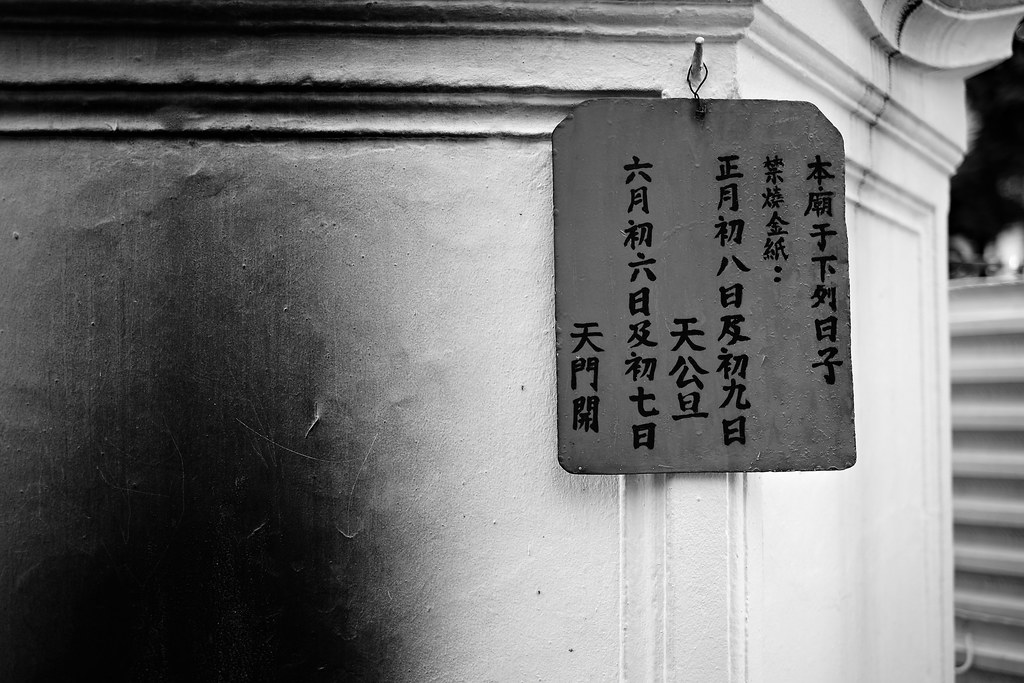 本廟于下列日子
禁燒金紙：
正月初八日及初九日
天公旦
六月初六日及初七日
天門開